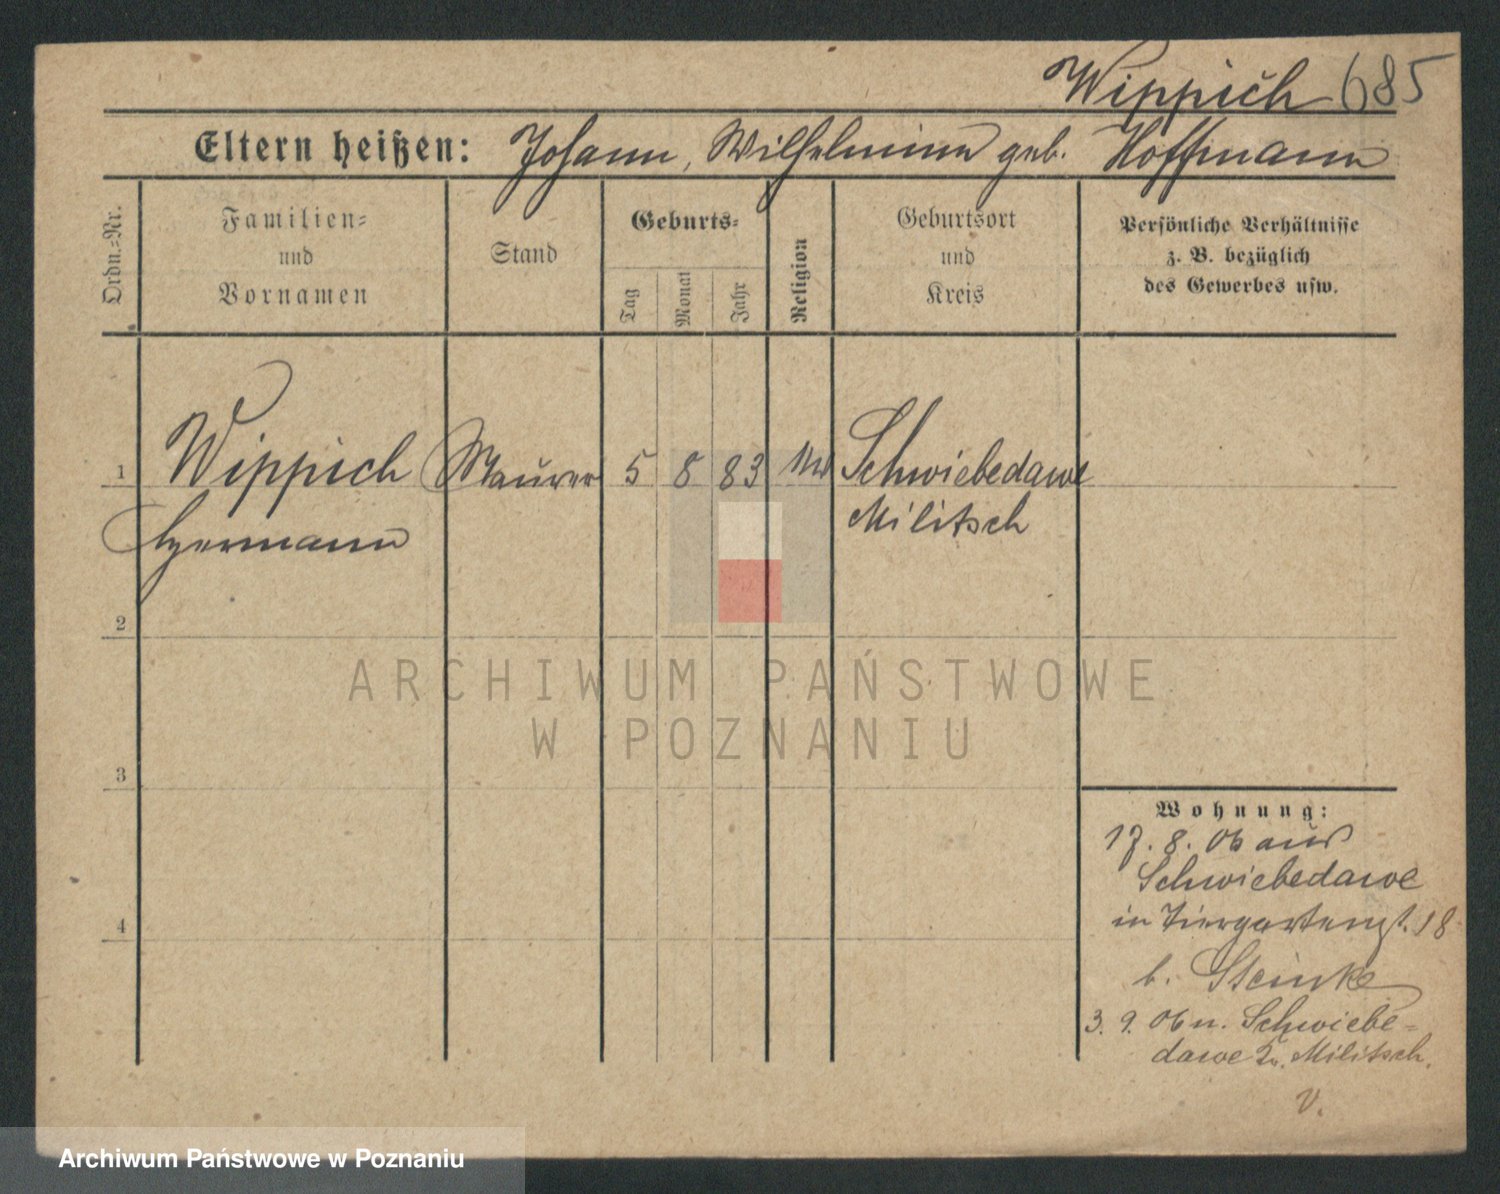 Wippich 685
Eltern heißen: Johann, Wilhelmine geb. Hoffmann
Ordn.-Nr.
Familien-
und
Vornamen
Stand
Geburts-
Tag
Monat
Jahr
Religion
Geburtsort
und
Kreis
Persönliche Verhältnisse
z. B. bezüglich
des Gewerbes usw.
1
Wippich
Hermann
Maurer
5
8
83
Schwiebedawe
Militsch
2
3
4
ARCHIWUM PAŃSTWOWE
W POZNANIU
Wohnung:
17. 8. 06 aus
Schwiebedawe
in Tiergartenst. 18
b. Steinke
3. 9. 06 n. Schwiebe-
dawe Militsch.
V.
Archiwum Państwowe w Poznaniu